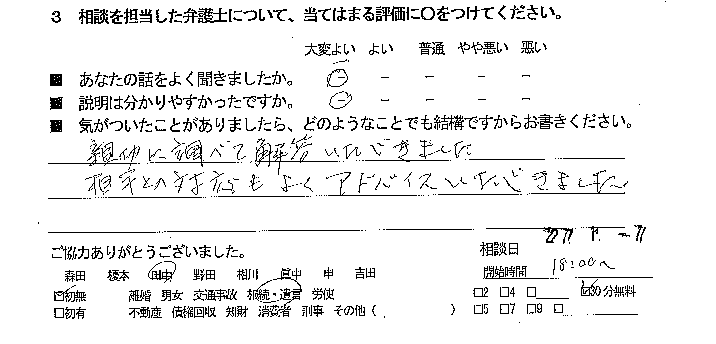 3 相談を担当した弁護士について、当てはまる評価に〇をつけてください。
大変よい よい 普通 やや悪い 悪い
■ あなたの話をよく聞きましたか。 − − − − −
■ 説明は分かりやすかったですか。 − − − − −
■ 気がついたことがありましたら、どのようなことでも結構ですからお書きください。
親切に調べて解答いただきました
相手との対応もよくアドバイスいただきました
ご協力ありがとうございました。
相談日
森田 榎本 田中 野田 相川 眞中 申 吉田
開始時間 18:00〜
☑初無 離婚 男女 交通事故 相続・遺言 労使
□2 □4 □ ☑30分無料
□初有 不動産 債権回収 知財 消費者 刑事 その他 ( )
□5 □7 □9 □